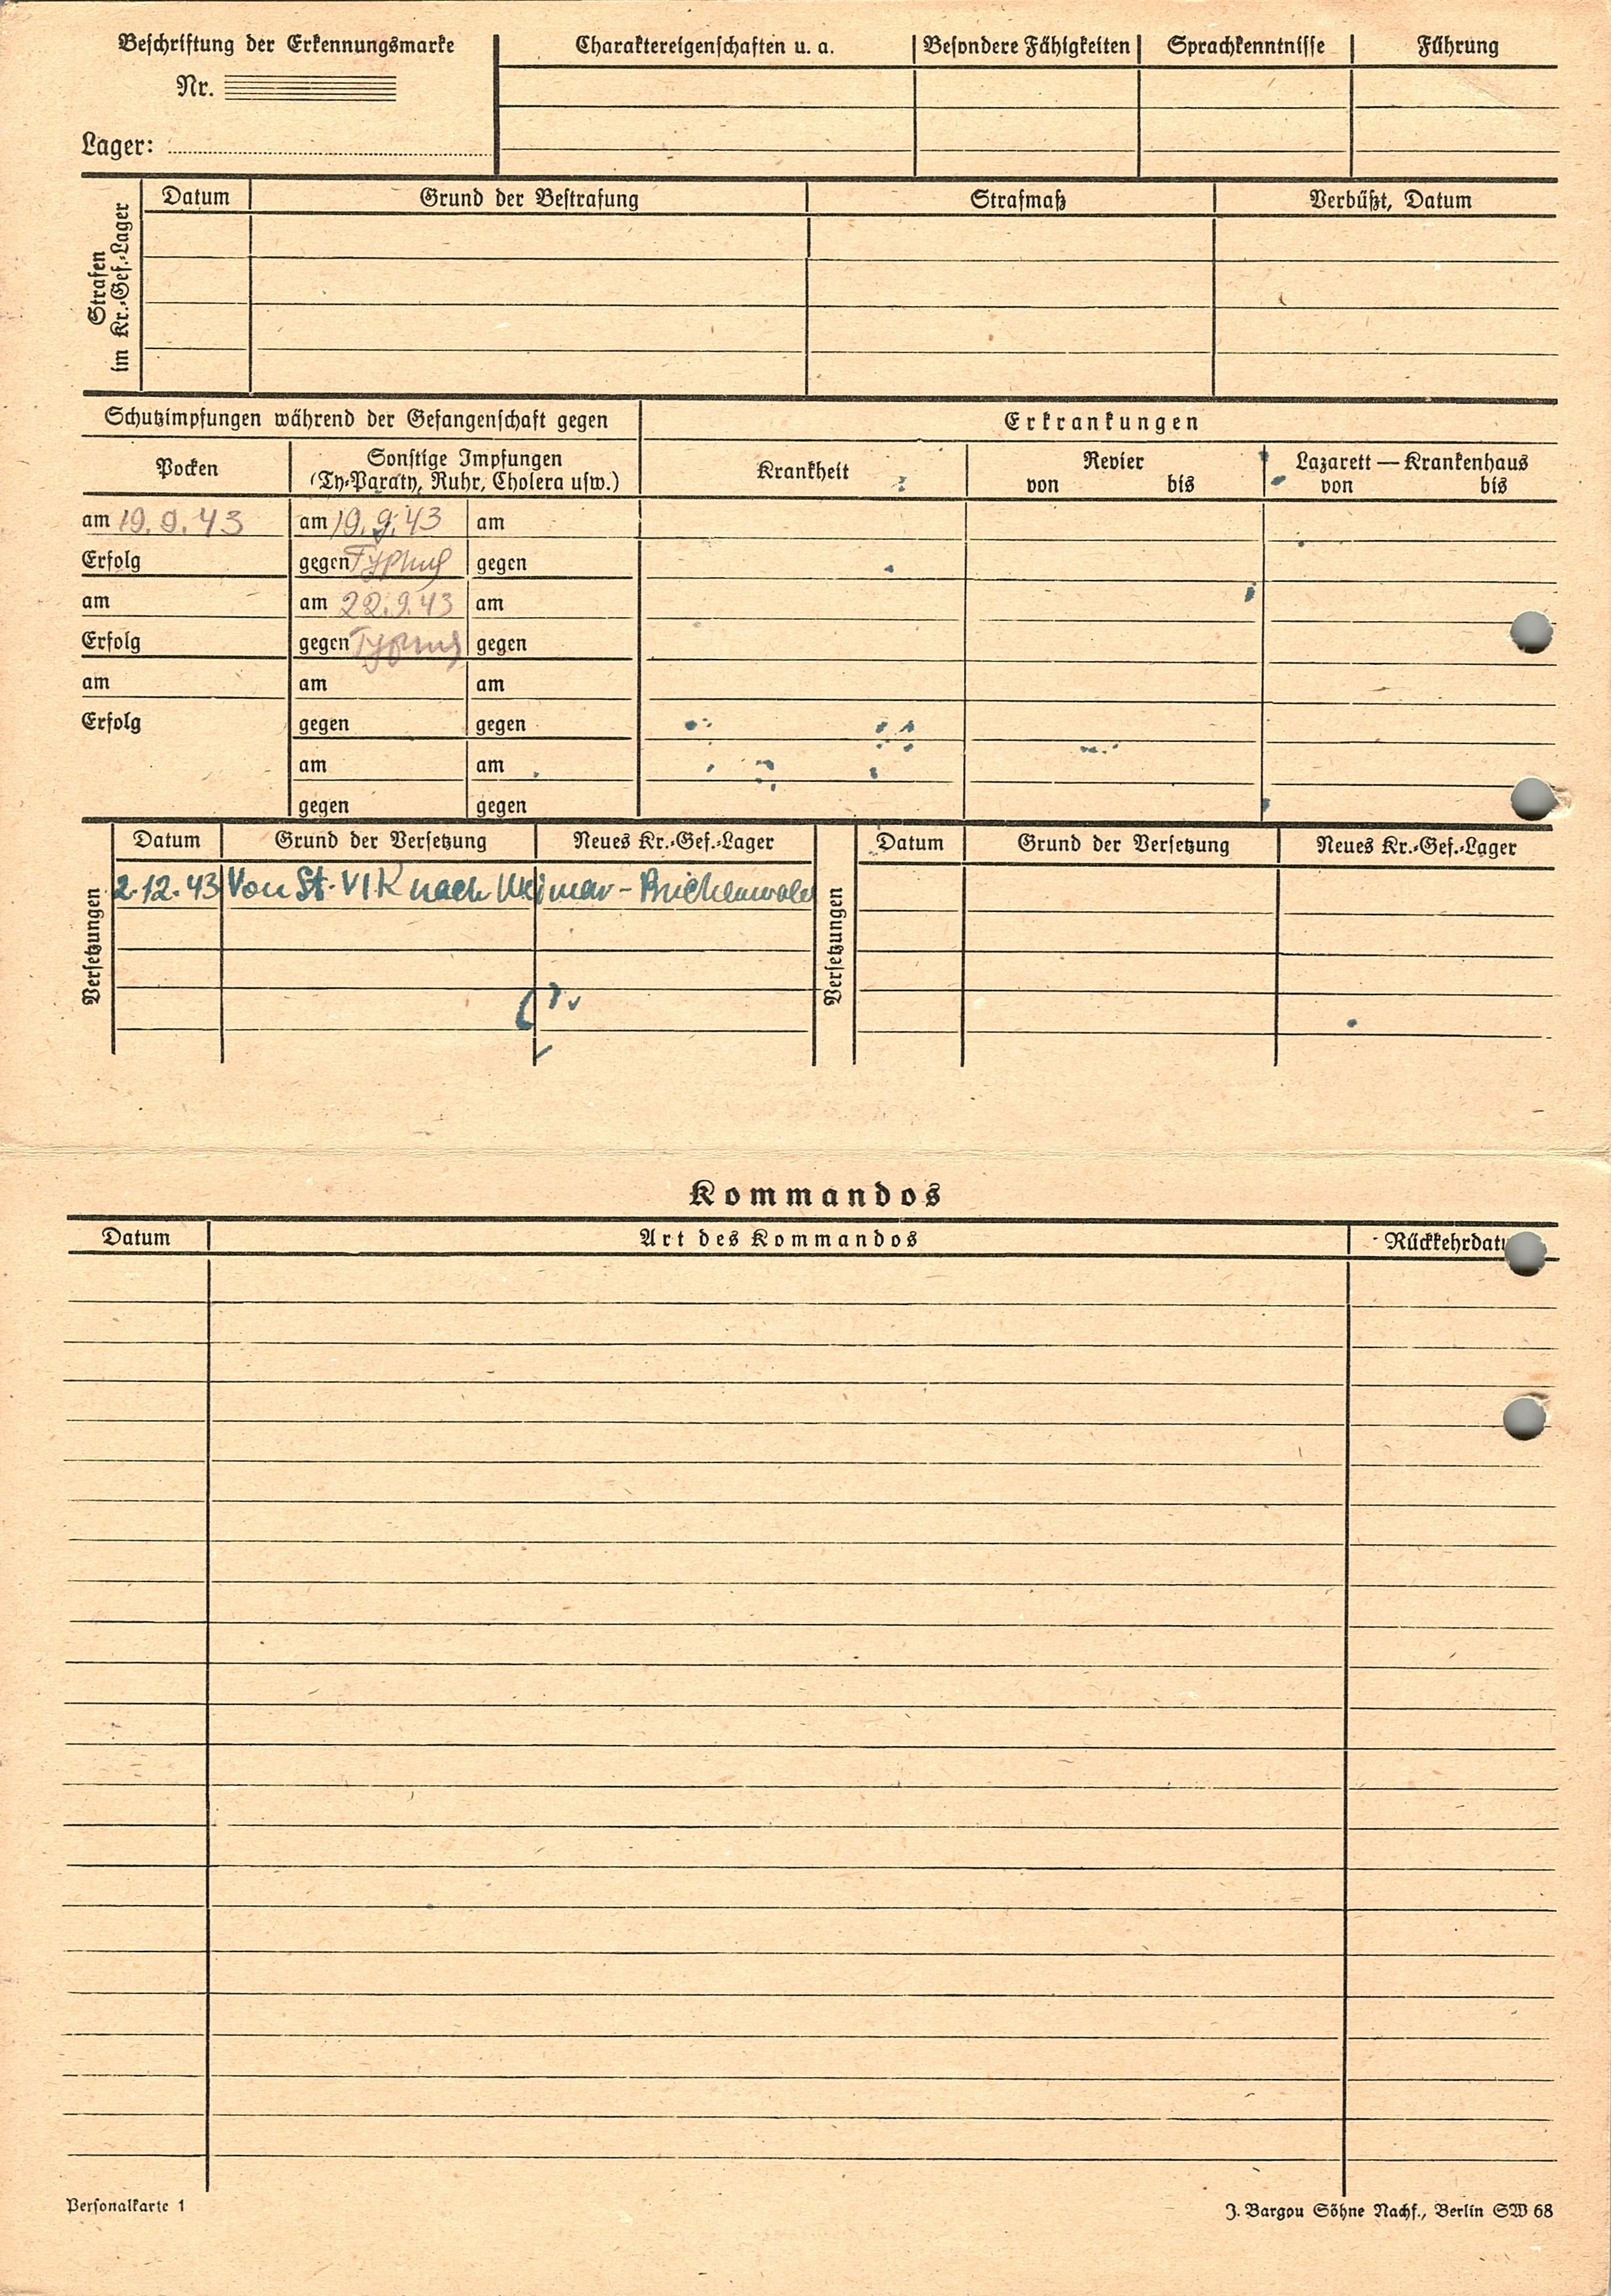 Beschriftung der Erkennungsmarke
Nr.
Lager:
Charaktereigenschaften u. a.
Besondere Fähigkeiten
Sprachkenntnisse
Führung
Strafen
im Kr.-Gef.-Lager
Datum
Grund der Bestrafung
Strafmaß
Verbüßt, Datum
Schutzimpfungen während der Gefangenschaft gegen
Erkrankungen
Pocken
Sonstige Impfungen
(Ty-Paraty, Ruhr, Cholera usw.)
Krankheit
Revier
von bis
Lazarett — Krankenhaus
von bis
am 19.9.43 am 19.9.43 am
Erfolg gegen Typhus gegen
am am 22.9.43 am
Erfolg gegen Typhus gegen
am am am
Erfolg gegen gegen
am am
gegen gegen
Versetzungen
Datum Grund der Versetzung Neues Kr.-Gef.-Lager
2.12.43 Von St. VI K nach Weimar - Buchenwald
Versetzungen
Datum Grund der Versetzung Neues Kr.-Gef.-Lager
Kommandos
Datum Art des Kommandos Rückkehrdatu
Personalkarte 1
J. Bargou Söhne Nachf., Berlin SW 68